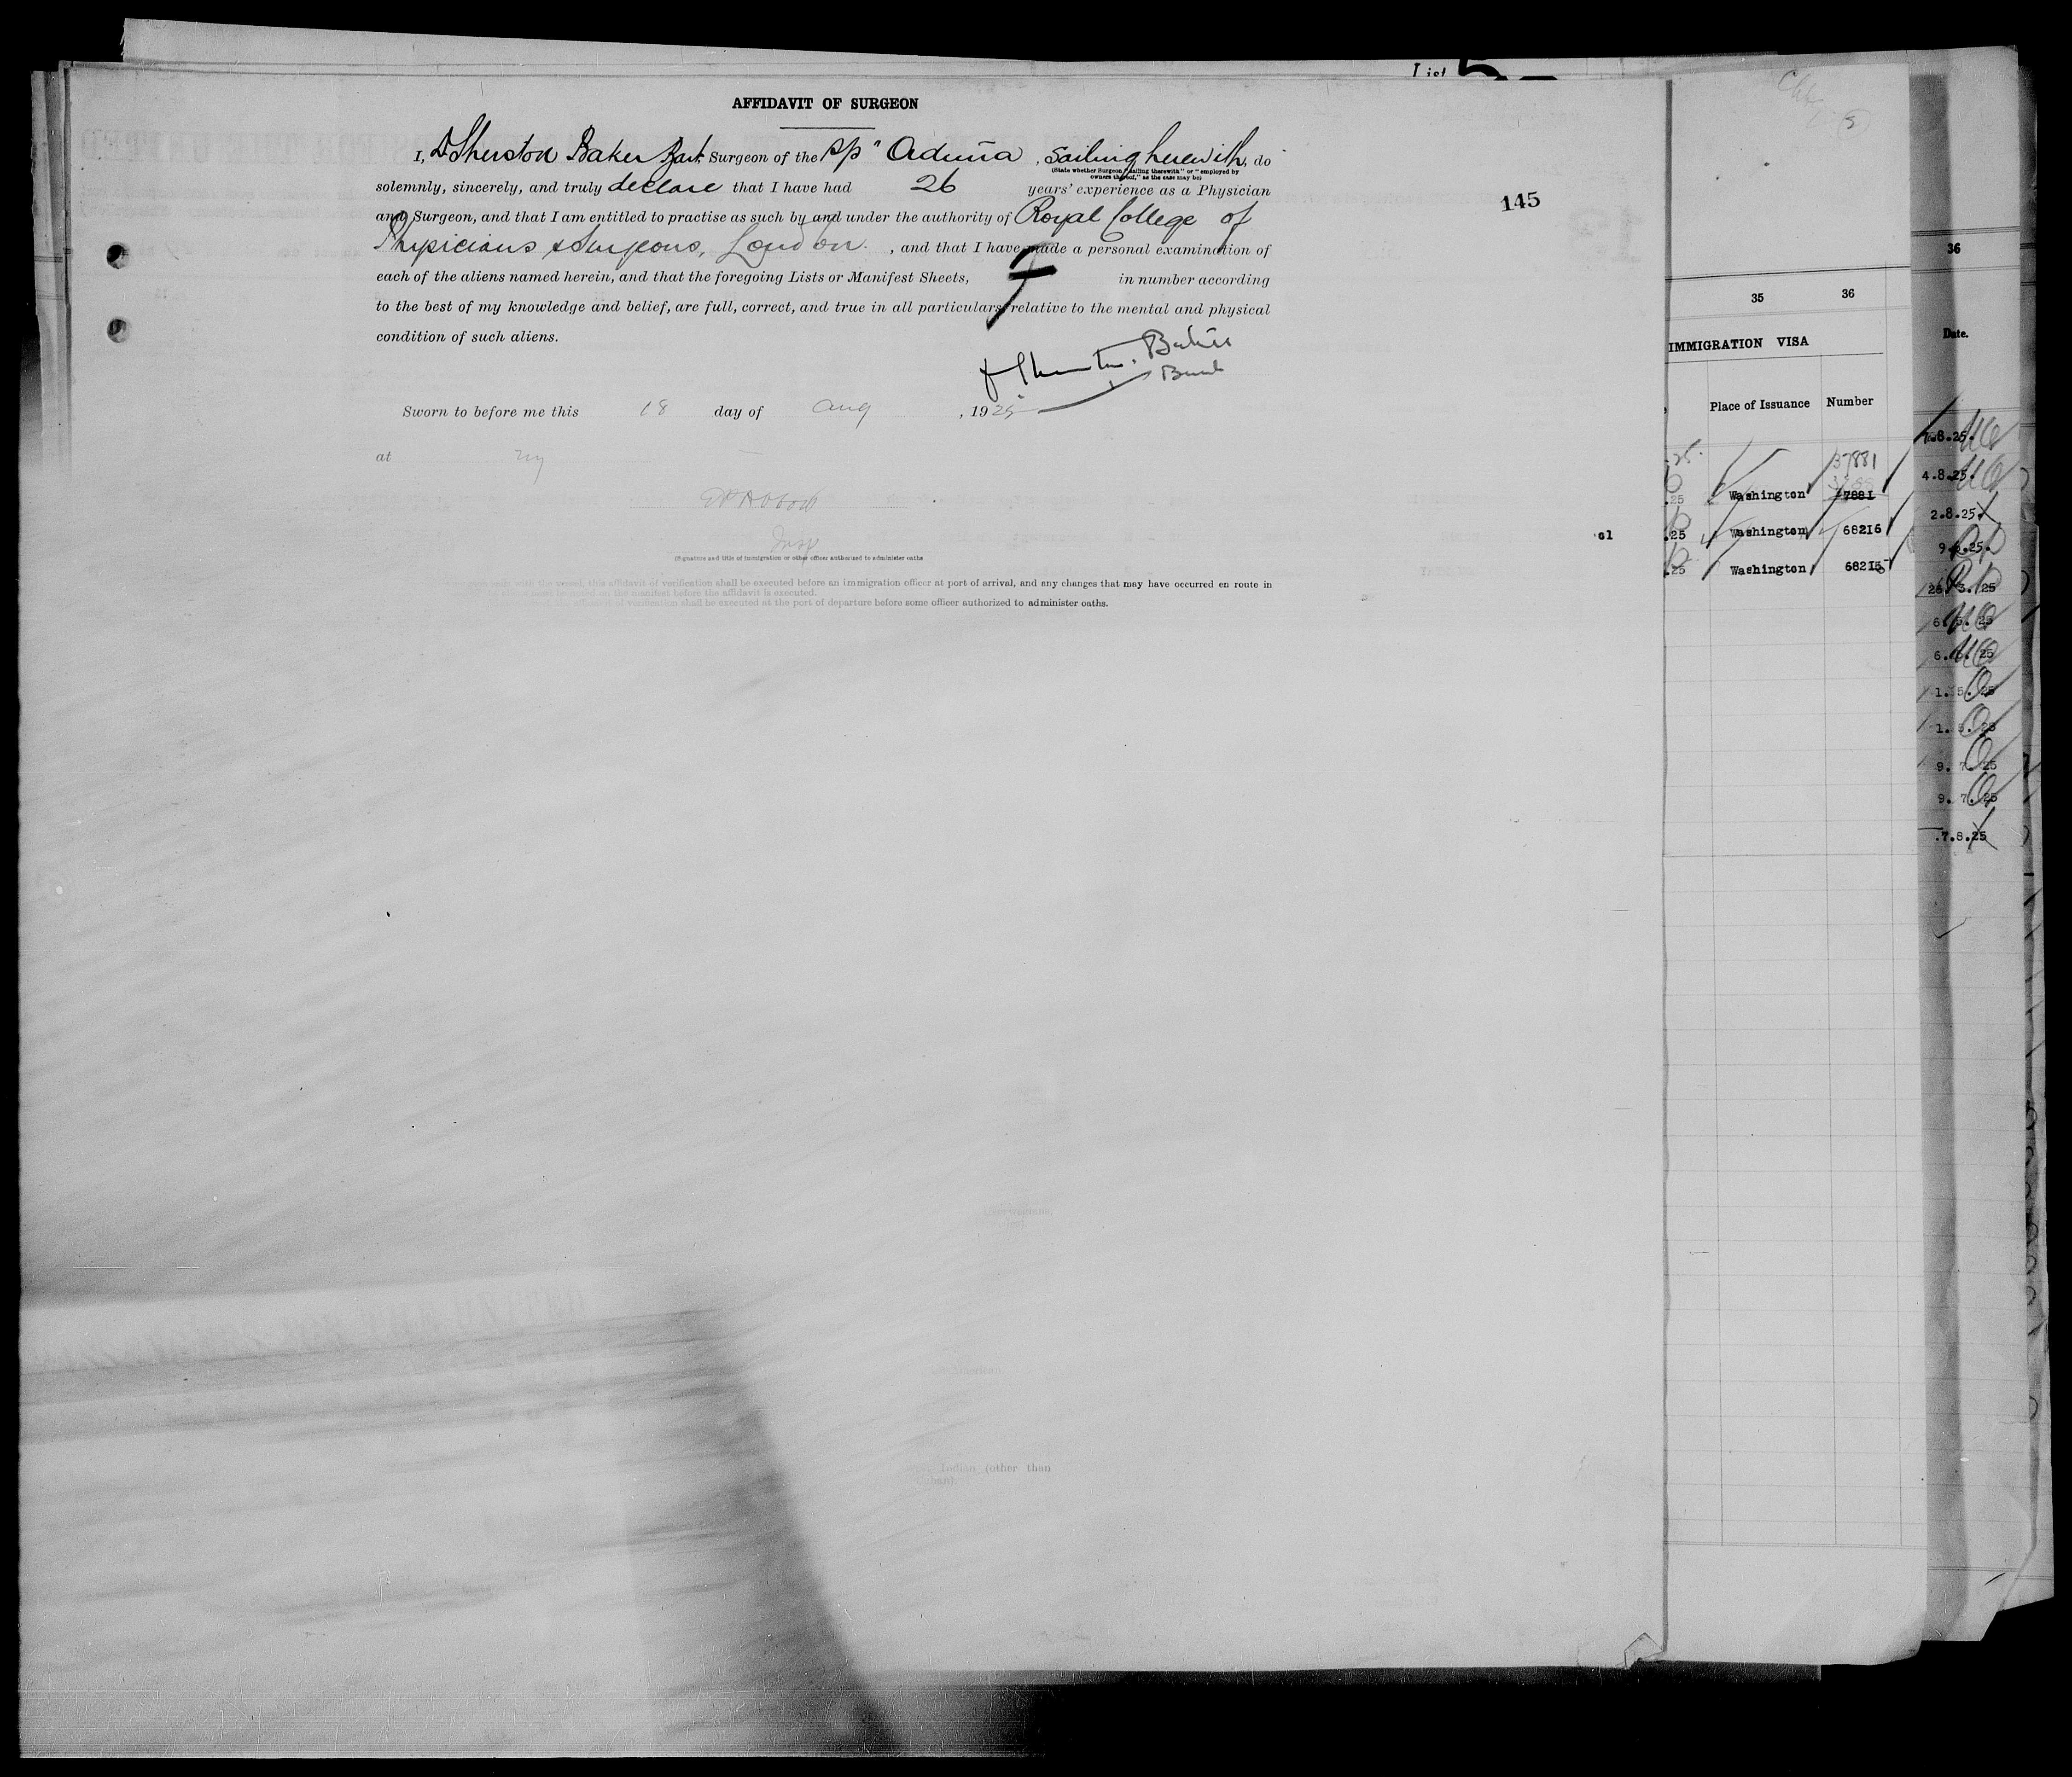 List 5
AFFIDAVIT OF SURGEON
I, D Sherston Baker Bart. Surgeon of the s/s "Oduña, sailing herewith, do
(State whether Surgeon "sailing therewith" or "employed by
owners thereof," as the case may be)
solemnly, sincerely, and truly declare that I have had 26 years' experience as a Physician
and Surgeon, and that I am entitled to practise as such by and under the authority of Royal College of
Physicians & Surgeons, London. , and that I have made a personal examination of
each of the aliens named herein, and that the foregoing Lists or Manifest Sheets, in number according
to the best of my knowledge and belief, are full, correct, and true in all particulars relative to the mental and physical
condition of such aliens.
D Sherston Baker
Bart
Sworn to before me this 18 day of Aug , 1925
at NY
Insp
(Signature and title of immigration or other officer authorized to administer oaths
with the vessel, this affidavit of verification shall be executed before an immigration officer at port of arrival, and any changes that may have occurred en route in
on the manifest before the affidavit is executed.
affidavit of verification shall be executed at the port of departure before some officer authorized to administer oaths.
145
Indian (other than
Cuban).
35 36
IMMIGRATION VISA
Place of Issuance Number
37881
.25 Washington 7881
cl .25 Washington 68216
.25 Washington 68215
36
Date.
.8.25.
4.8.25.
2.8.25
9.6.25.
26.3.25
6.5.25
6.6.25
1.5.25
1.5.25
9.7.25
9.7.25
.7.8.25